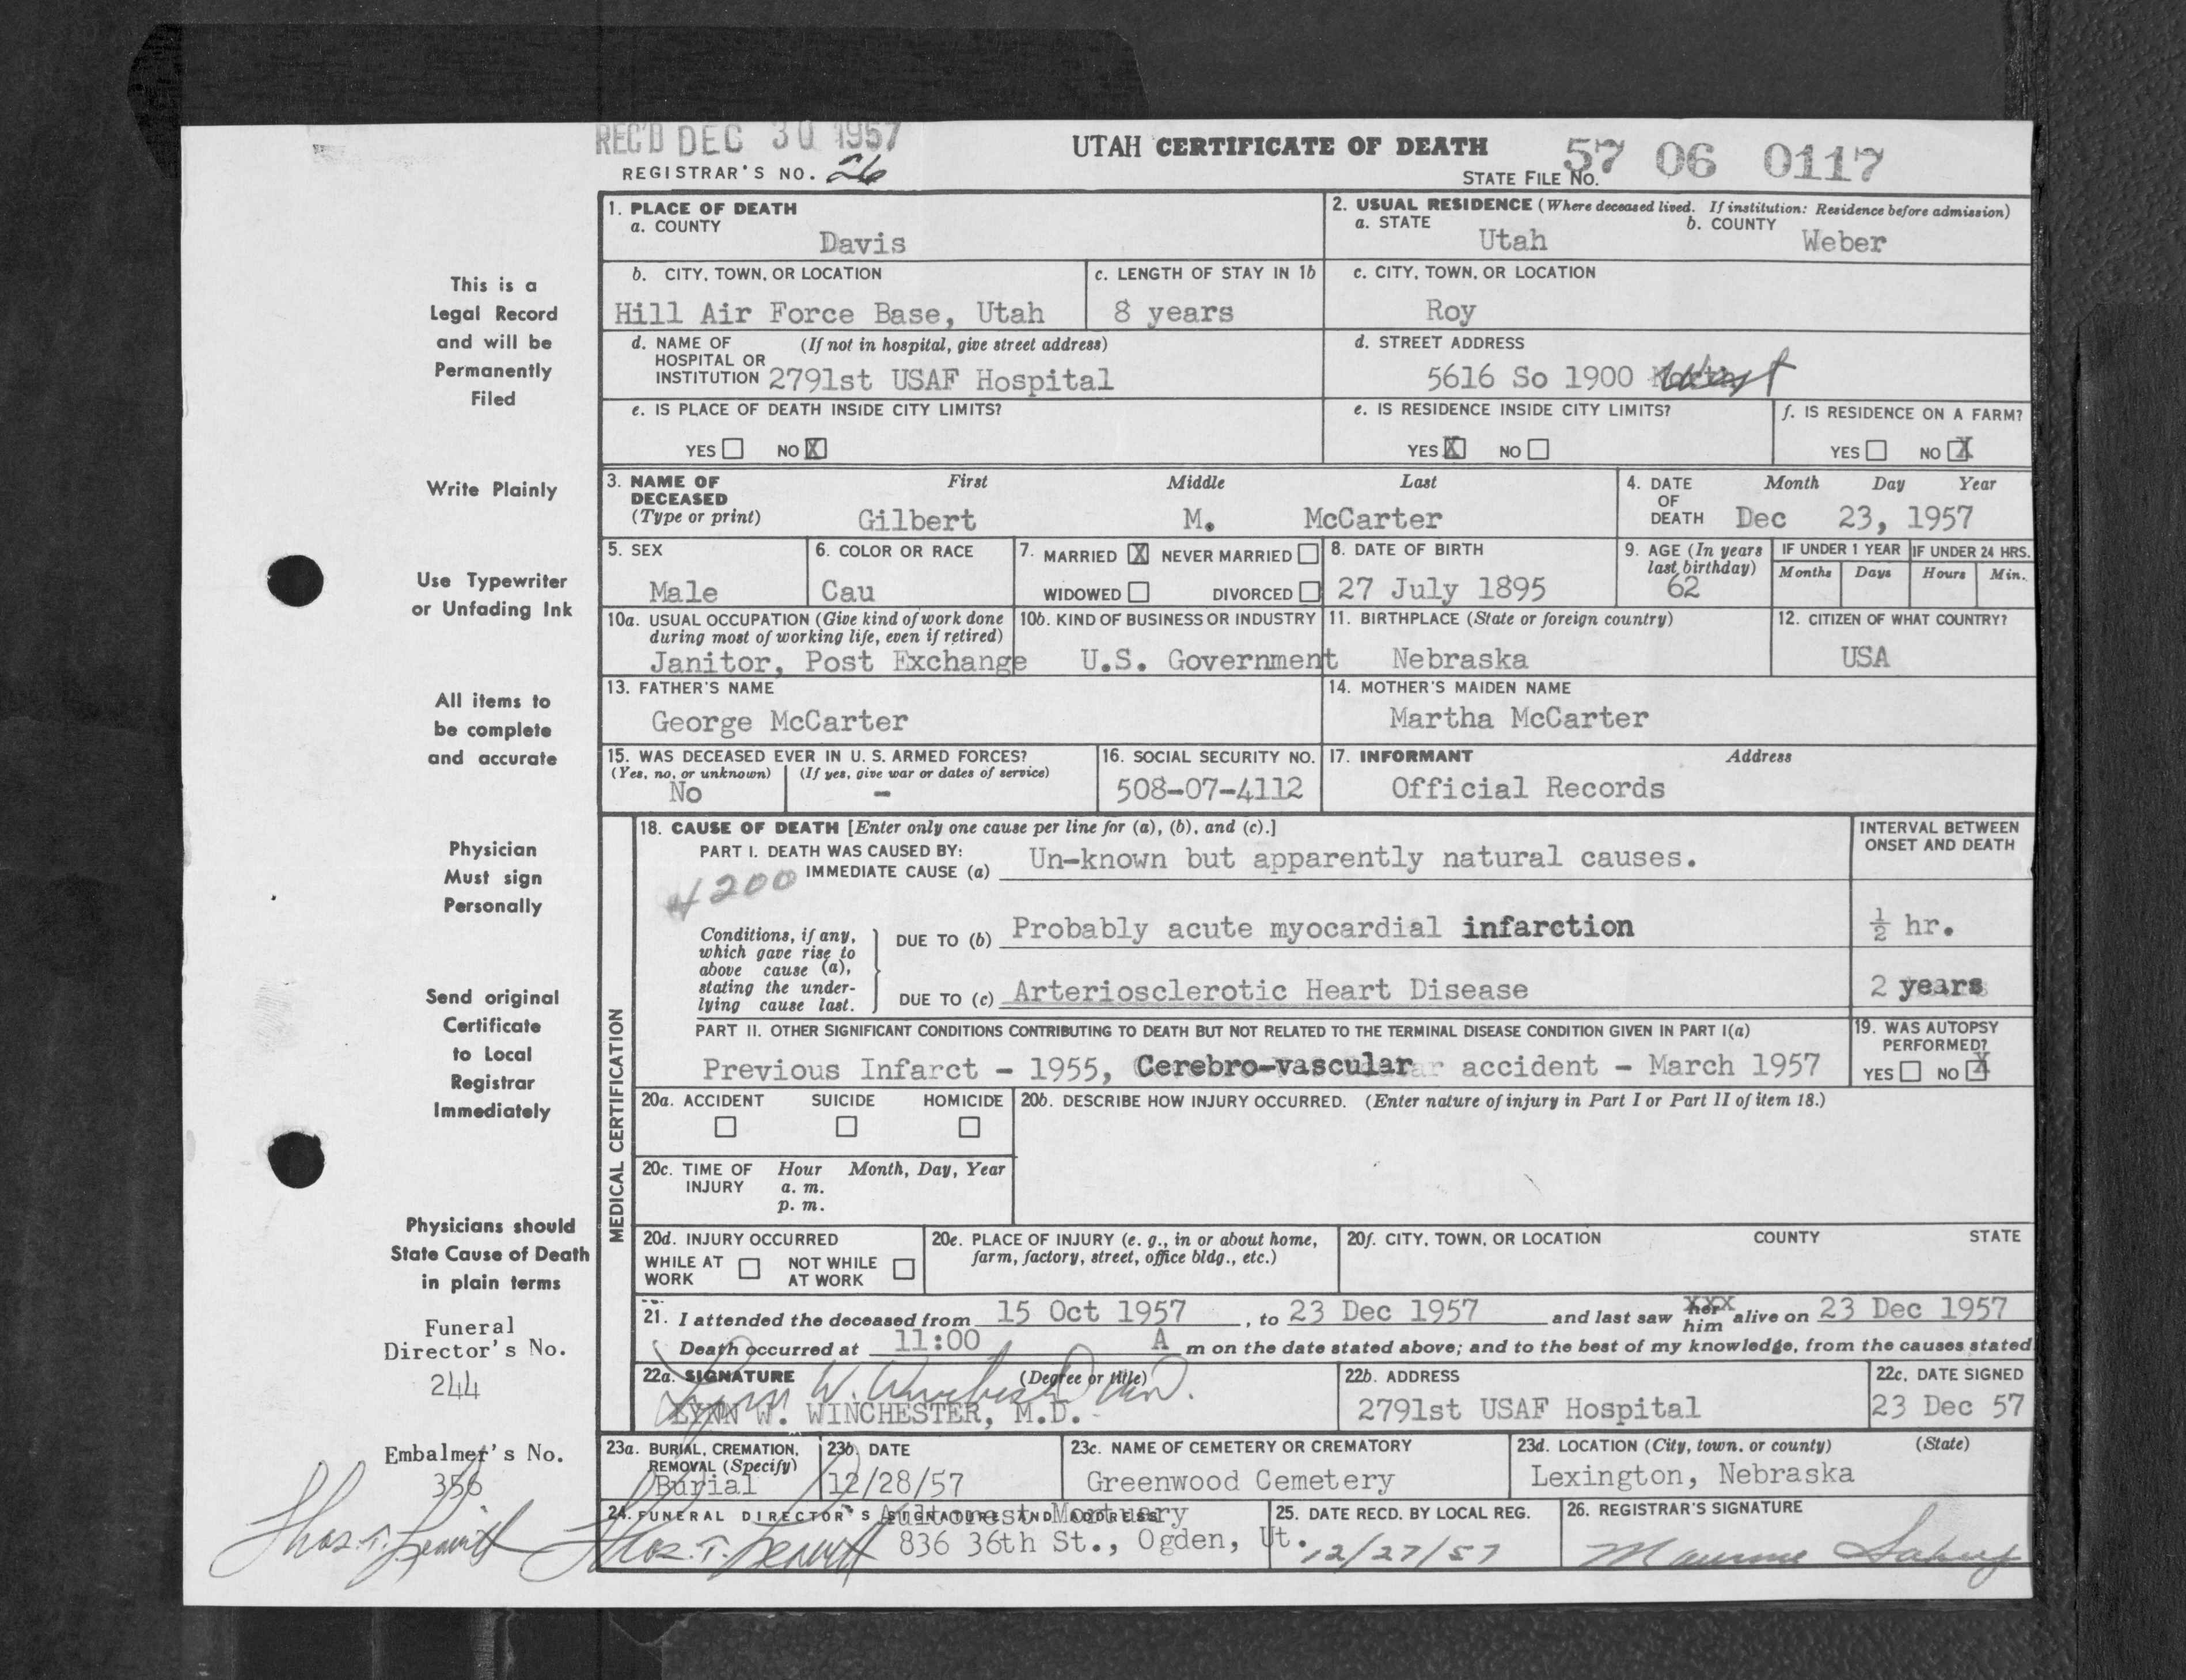 REC'D DEC 30 1957
UTAH CERTIFICATE OF DEATH
57 06 0117
REGISTRAR'S NO. 26
STATE FILE NO.
This is a
Legal Record
and will be
Permanently
Filed
Write Plainly
Use Typewriter
or Unfading Ink
All items to
be complete
and accurate
Physician
Must sign
Personally
Send original
Certificate
to Local
Registrar
Immediately
Physicians should
State Cause of Death
in plain terms
Funeral
Director's No.
244
Embalmer's No.
356
1. PLACE OF DEATH
a. COUNTY
Davis
2. USUAL RESIDENCE (Where deceased lived. If institution: Residence before admission)
a. STATE b. COUNTY
Utah Weber
b. CITY, TOWN, OR LOCATION
Hill Air Force Base, Utah
c. LENGTH OF STAY IN 1b
8 years
c. CITY, TOWN, OR LOCATION
Roy
d. NAME OF (If not in hospital, give street address)
HOSPITAL OR
INSTITUTION 2791st USAF Hospital
d. STREET ADDRESS
5616 So 1900 West
e. IS PLACE OF DEATH INSIDE CITY LIMITS?
YES NO X
e. IS RESIDENCE INSIDE CITY LIMITS?
YES X NO
f. IS RESIDENCE ON A FARM?
YES NO X
3. NAME OF First Middle Last
DECEASED
(Type or print) Gilbert M. McCarter
4. DATE Month Day Year
OF
DEATH Dec 23, 1957
5. SEX
Male
6. COLOR OR RACE
Cau
7. MARRIED X NEVER MARRIED
WIDOWED DIVORCED
8. DATE OF BIRTH
27 July 1895
9. AGE (In years
last birthday)
62
IF UNDER 1 YEAR
Months Days
IF UNDER 24 HRS.
Hours Min.
10a. USUAL OCCUPATION (Give kind of work done
during most of working life, even if retired)
Janitor, Post Exchange
10b. KIND OF BUSINESS OR INDUSTRY
U.S. Government
11. BIRTHPLACE (State or foreign country)
Nebraska
12. CITIZEN OF WHAT COUNTRY?
USA
13. FATHER'S NAME
George McCarter
14. MOTHER'S MAIDEN NAME
Martha McCarter
15. WAS DECEASED EVER IN U. S. ARMED FORCES?
(Yes, no, or unknown) (If yes, give war or dates of service)
No -
16. SOCIAL SECURITY NO.
508-07-4112
17. INFORMANT Address
Official Records
MEDICAL CERTIFICATION
18. CAUSE OF DEATH [Enter only one cause per line for (a), (b), and (c).]
INTERVAL BETWEEN
ONSET AND DEATH
PART I. DEATH WAS CAUSED BY:
IMMEDIATE CAUSE (a) Un-known but apparently natural causes.
4200
Conditions, if any,
which gave rise to
above cause (a),
stating the under-
lying cause last.
DUE TO (b) Probably acute myocardial infarction ½ hr.
DUE TO (c) Arteriosclerotic Heart Disease 2 years
PART II. OTHER SIGNIFICANT CONDITIONS CONTRIBUTING TO DEATH BUT NOT RELATED TO THE TERMINAL DISEASE CONDITION GIVEN IN PART I(a)
Previous Infarct - 1955, Cerebro-vascular accident - March 1957
19. WAS AUTOPSY
PERFORMED?
YES NO X
20a. ACCIDENT SUICIDE HOMICIDE
20b. DESCRIBE HOW INJURY OCCURRED. (Enter nature of injury in Part I or Part II of item 18.)
20c. TIME OF Hour Month, Day, Year
INJURY a. m.
p. m.
20d. INJURY OCCURRED
WHILE AT NOT WHILE
WORK AT WORK
20e. PLACE OF INJURY (e. g., in or about home,
farm, factory, street, office bldg., etc.)
20f. CITY, TOWN, OR LOCATION COUNTY STATE
21. I attended the deceased from 15 Oct 1957, to 23 Dec 1957 and last saw her XXX him alive on 23 Dec 1957
Death occurred at 11:00 A m on the date stated above; and to the best of my knowledge, from the causes stated
22a. SIGNATURE (Degree or title)
Lynn W. Winchester M.D.
LYNN W. WINCHESTER, M.D.
22b. ADDRESS
2791st USAF Hospital
22c. DATE SIGNED
23 Dec 57
23a. BURIAL, CREMATION,
REMOVAL (Specify)
Burial
23b. DATE
12/28/57
23c. NAME OF CEMETERY OR CREMATORY
Greenwood Cemetery
23d. LOCATION (City, town, or county) (State)
Lexington, Nebraska
24. FUNERAL DIRECTOR'S SIGNATURE AND ADDRESS
Aultorest Mortuary
836 36th St., Ogden, Ut.
25. DATE RECD. BY LOCAL REG.
12/27/57
26. REGISTRAR'S SIGNATURE
Maurine